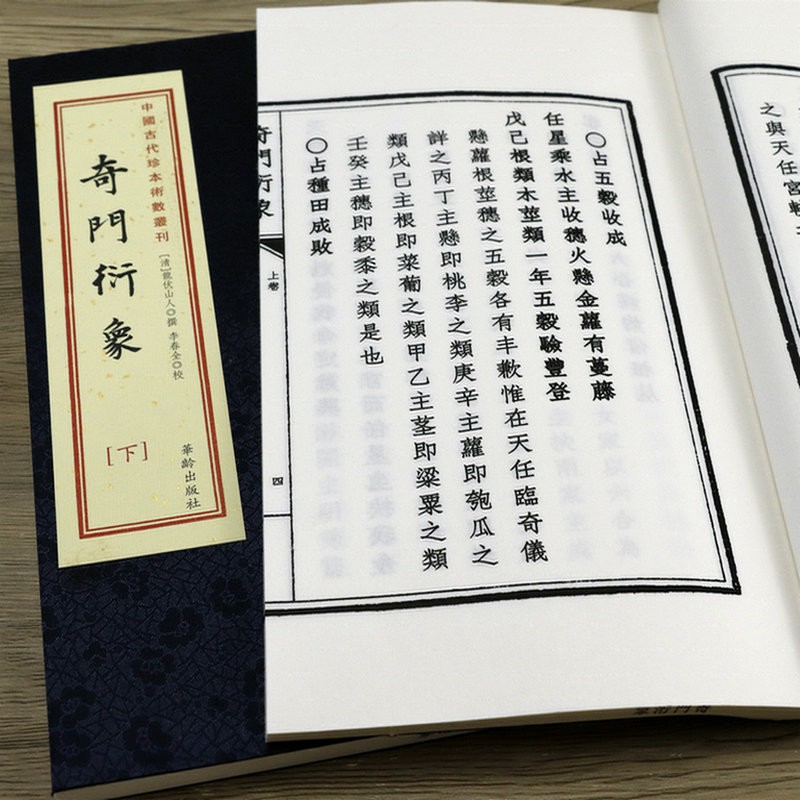 中國古代珍本術數叢刊
奇門衍象
[清]龍伏山人◎撰 李春全◎校
[下]
華齡出版社
之與天任宮
〇占五穀收成
任星乘水主收穗火懸金蘿有蔓藤
戊己根類木莖類一年五穀驗豐登
懸蘿根莖穗之五穀各有丰歉惟在天任臨奇儀
詳之丙丁主懸即桃李之類庚辛主蘿即匏瓜之
類戊己主根即菜蔔之類甲乙主茎即粱粟之類
壬癸主穗即穀黍之類是也
〇占種田成敗
奇門衍象
上卷
四